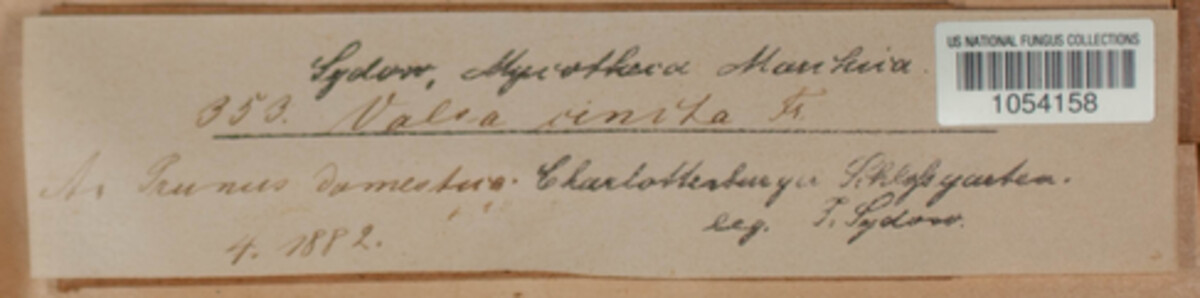 US NATIONAL FUNGUS COLLECTIONS
1054158
Sydow, Mycotheca Marchica.
353. Valsa cincta Fr.
An Prunus domestica. Charlottenburger Schloßgarten.
4. 1882. leg. P. Sydow.